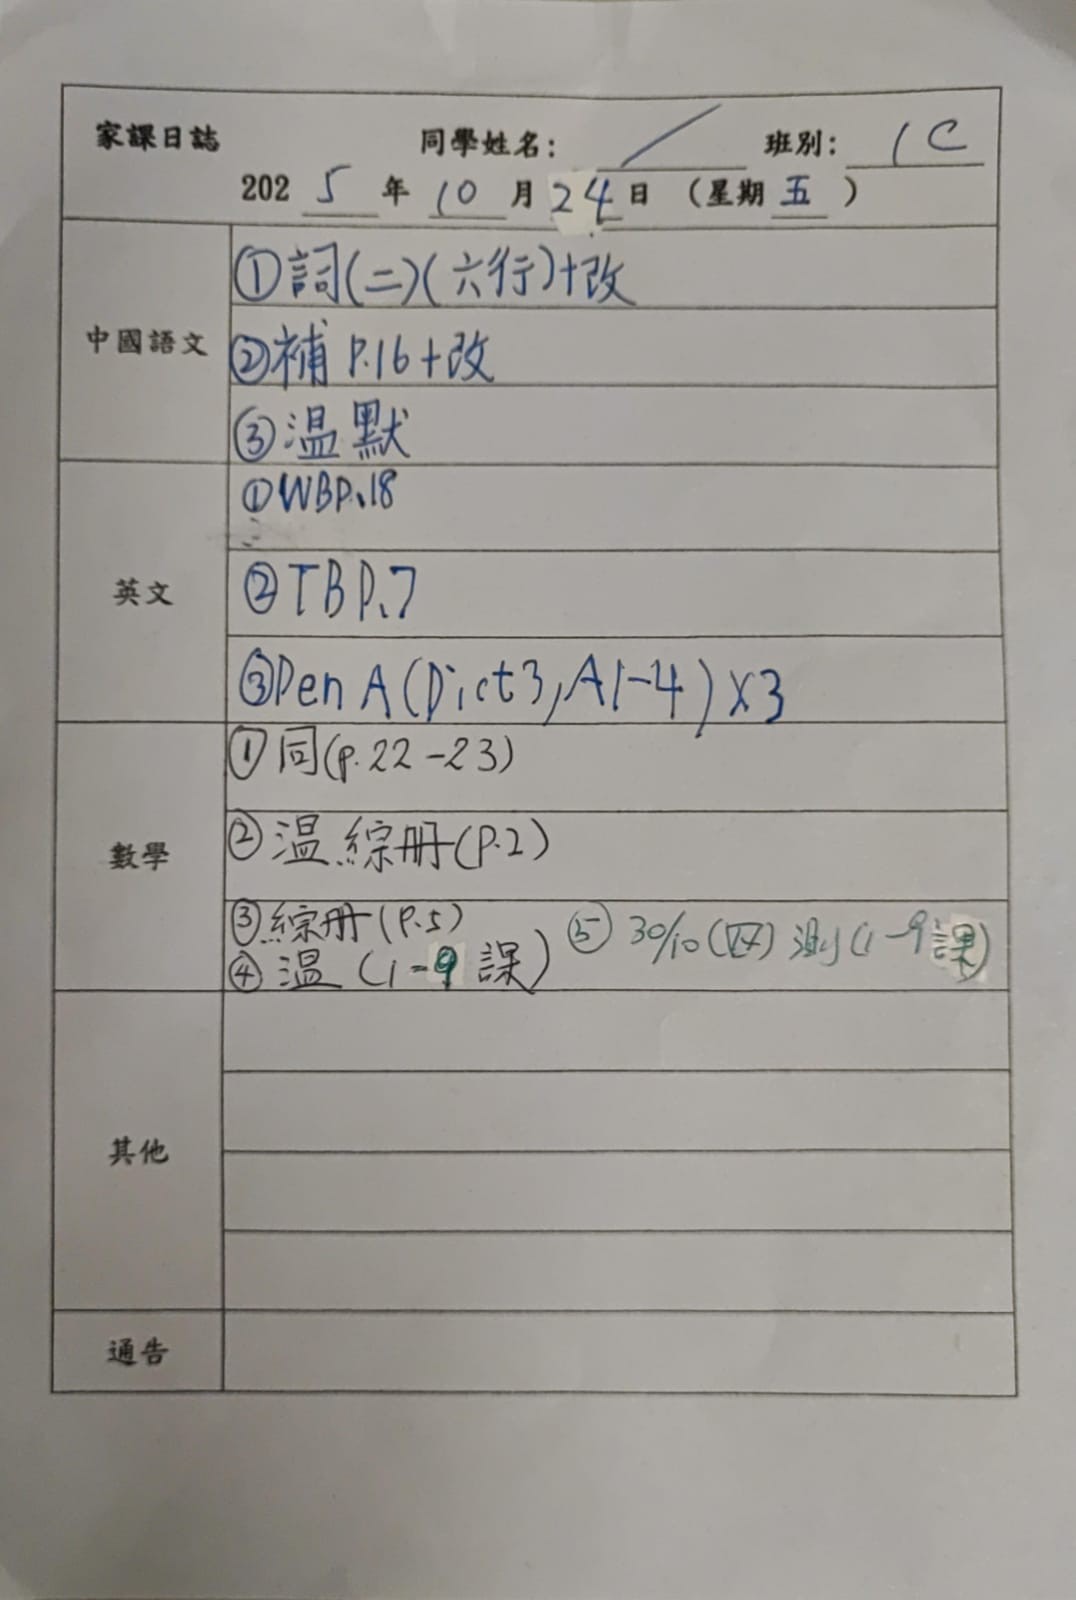 家課日誌 同學姓名: / 班別: 1C
2025年10月24日 (星期五)
中國語文
①詞(二)(六行)+改
②補 P.16+改
③温默
英文
①WBP.18
②TBP.7
③Pen A(Dict3,A1-4)×3
數學
①同(p.22-23)
②温綜册(P.2)
③綜册(P.5)
④温(1-9課) ⑤30/10(四)測(1-9課)
其他
通告